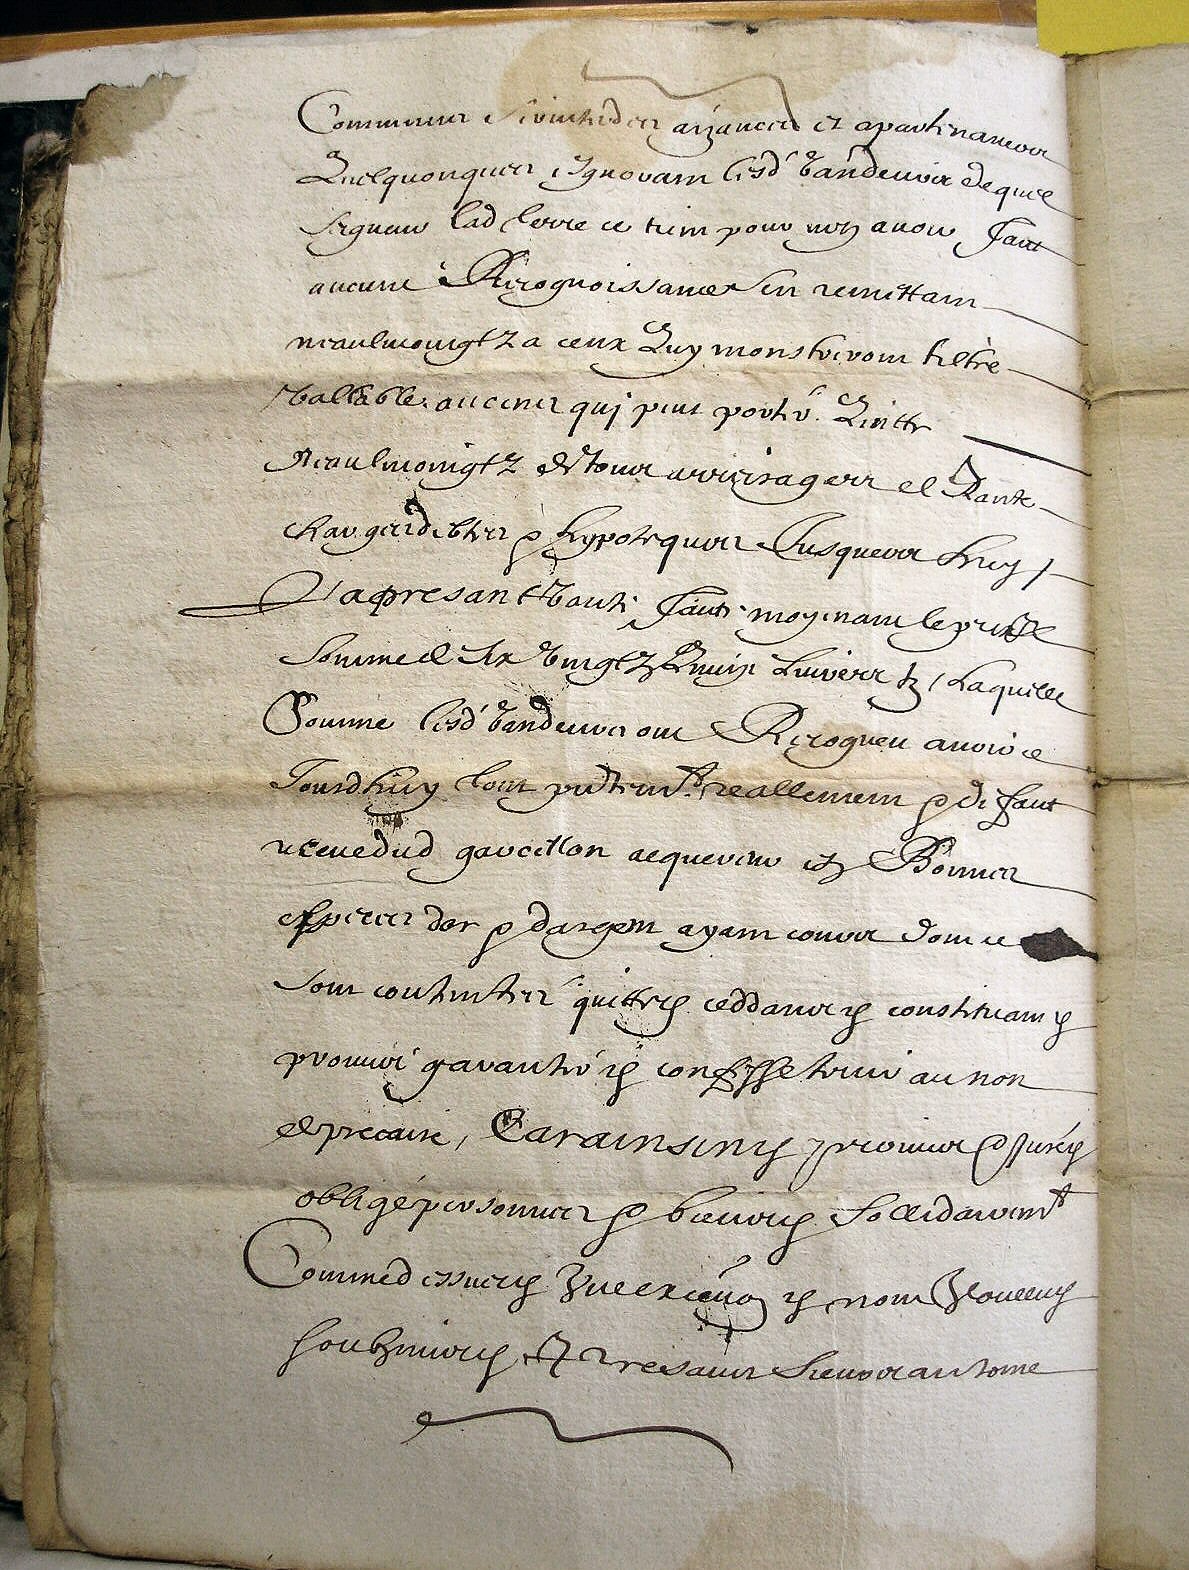 Communes servitudes aizances et apartenances
Quelquonques ignorant lesd vandeurs de quel
segneur lad terre ce tient pour n'en avoir faict
aucune Recognoissance sen remettant
neaulmoingtz a ceux Quy monstreront tiltre
vallable aucenes qui peut porter Quitte
Neaulmoingtz de tous arreirages et
charges debtes et hypoteques Jusques a huy
La presant vante faicte moyenant le prix
somme de six vingtz livres tz Laquelle
Somme lesd vandeurs ont Recogneu avoir ce
Jourdhuy tout presantemt reallement et de faict
receue dud gaucillon acquereur en Bonnes
especes dor et dargent ayant cours dont ce
sont contentes quittes ceddans constituant
promis garantir confesse tenir au nom
de precaire, Car ainsin promis et Jure
oblige personnes et biens sollidairemt
Comme dessus renonceans
soubzmis presans antoine